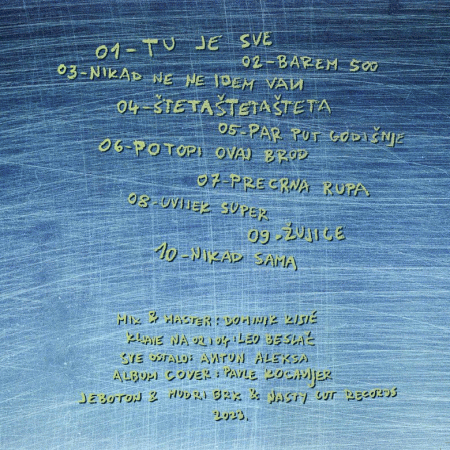 01-TU JE SVE
02-BAREM 500
03-NIKAD NE NE IDEM VAN
04-ŠTETAŠTETAŠTETA
05-PAR PUT GODIŠNJE
06-POTOPI OVAJ BROD
07-PRECRNA RUPA
08-UVIJEK SUPER
09-ŽUJICE
10-NIKAD SAMA
MIX & MASTER: DOMINIK KISIĆ
KLAVE NA 02 I 06: LEO BESLAĆ
SVE OSTALO: ANTUN ALEKSA
ALBUM COVER: PAVLE KOCANJER
JEBOTON & MUDRI BRK & NASTY CUT RECORDS
2023.